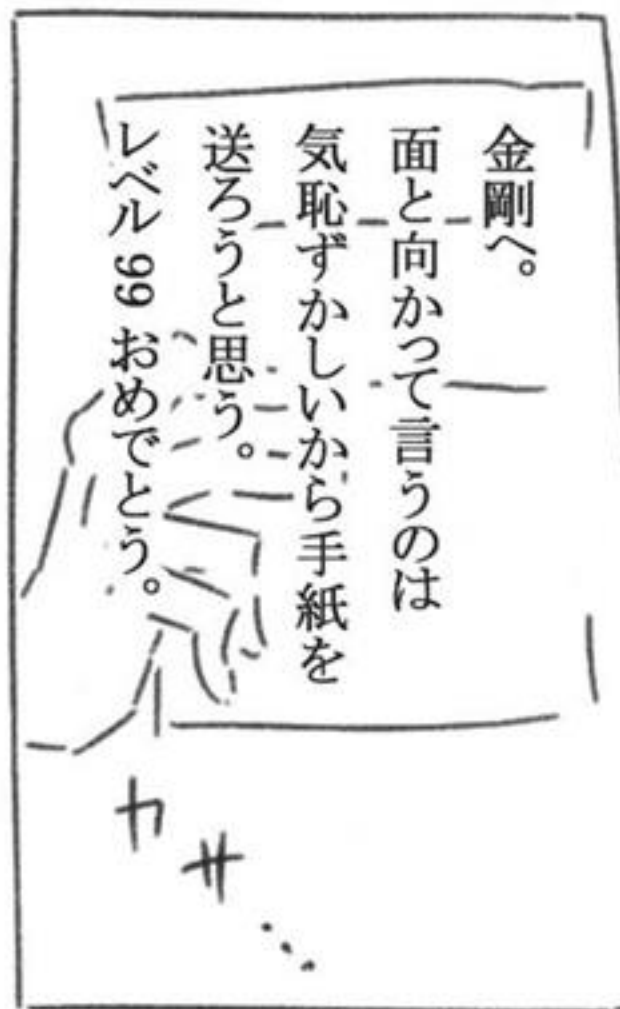 金剛へ。
面と向かって言うのは
気恥ずかしいから手紙を
送ろうと思う。
レベル 99 おめでとう。
カサ…